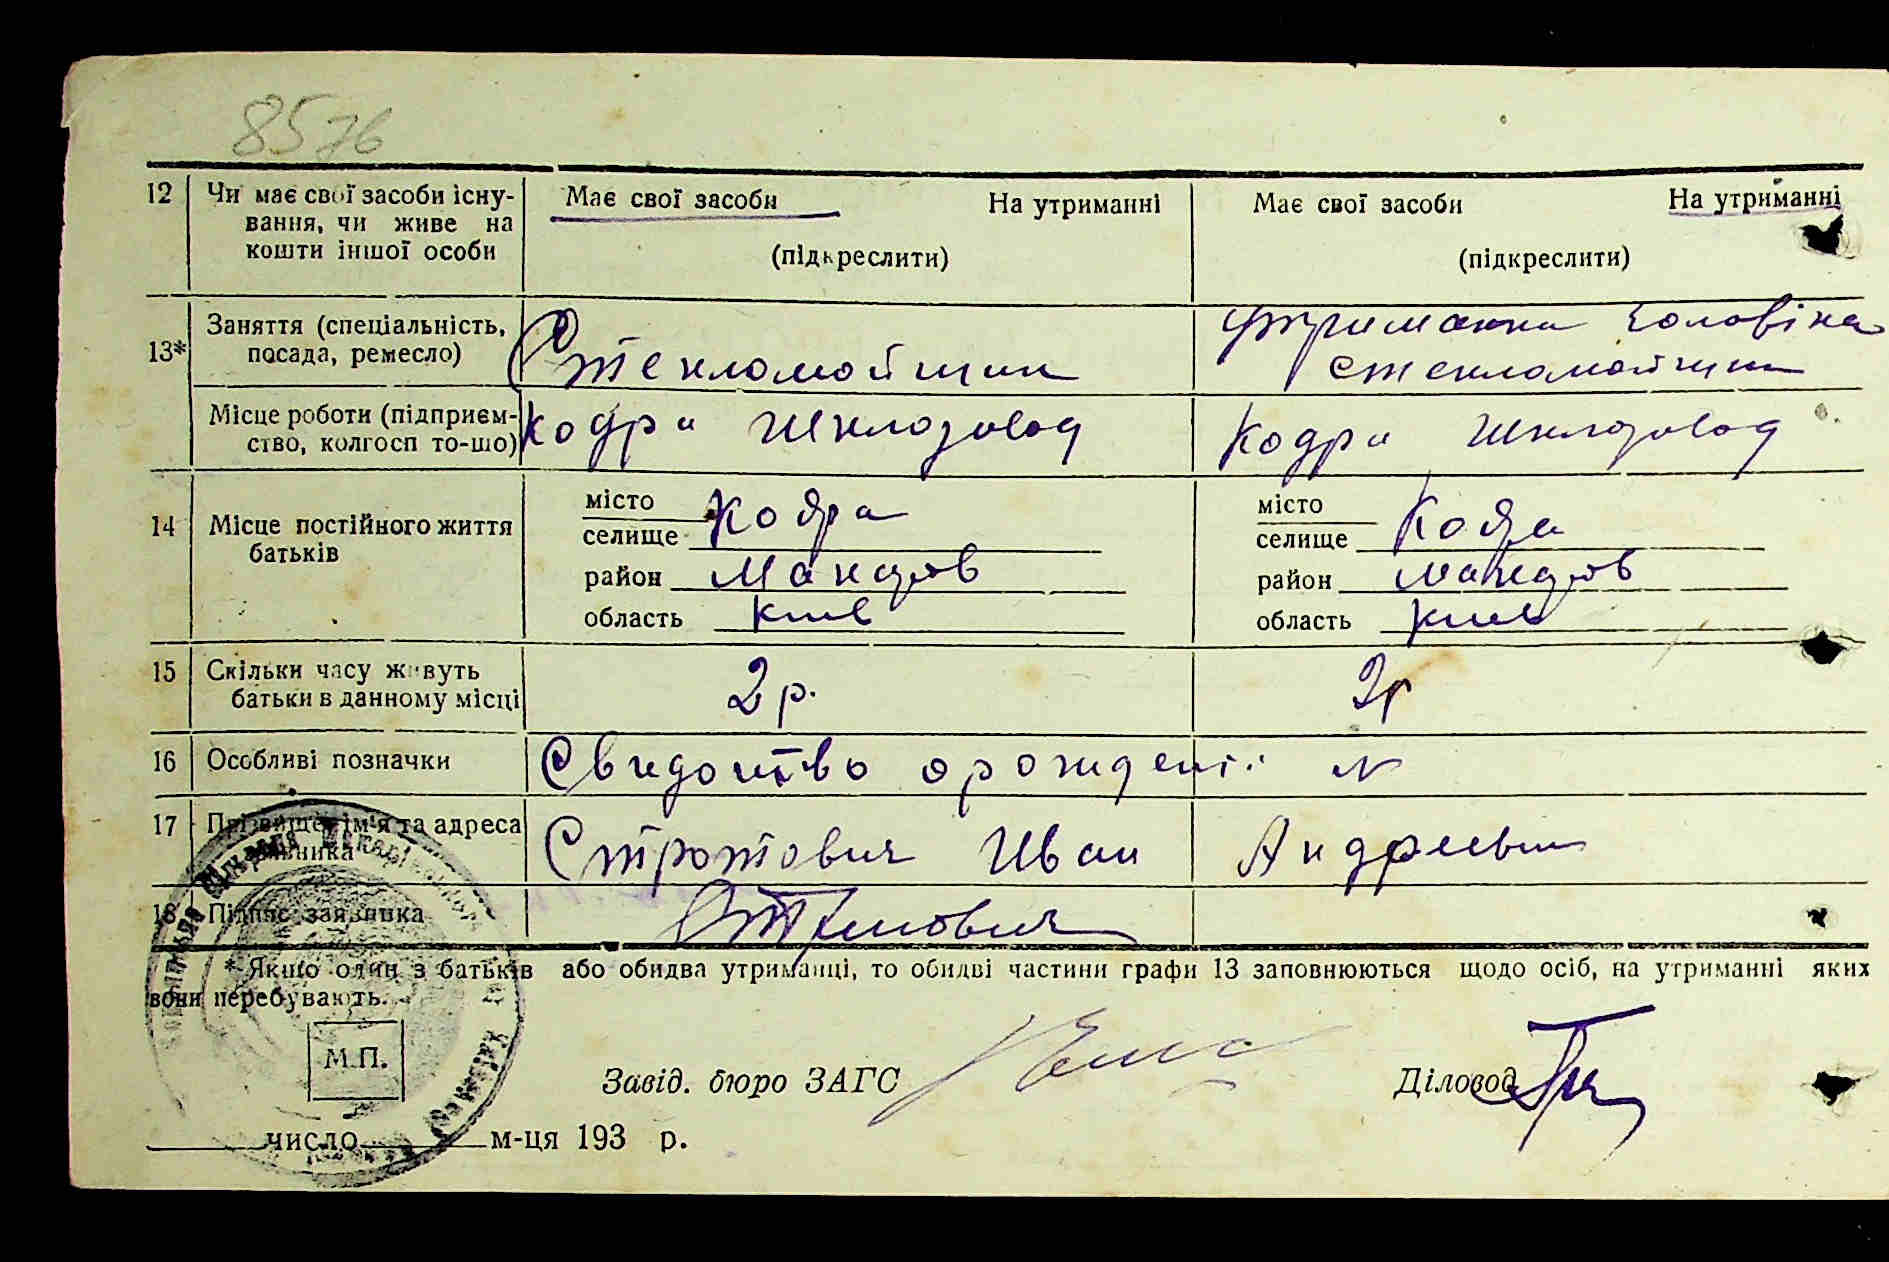 8576
12 Чи має свої засоби існу- Має свої засоби На утриманні Має свої засоби На утриманні
вання, чи живе на
кошти іншої особи (підкреслити) (підкреслити)
13* Заняття (спеціальність, утриманка чоловіка
посада, ремесло) Стекломойщик стекломойщик
Місце роботи (підприєм- Кодра Шклозавод Кодра Шклозавод
ство, колгосп то-що)
14 Місце постійного життя місто Кодра місто Кодра
батьків селище селище
район район
область Київ область Київ
15 Скільки часу живуть 2 р. 2 р
батьки в данному місці
16 Особливі позначки Свидоцтво о рождені N
17 Прізвище, ім'я та адреса Стротович Иван Андреевич
заявника
18 Підпис заявника
* Якщо один з батьків або обидва утриманці, то обидві частини графи 13 заповнюються щодо осіб, на утриманні яких
вони перебувають.
М.П.
Завід. бюро ЗАГС Діловод
число м-ця 193 р.